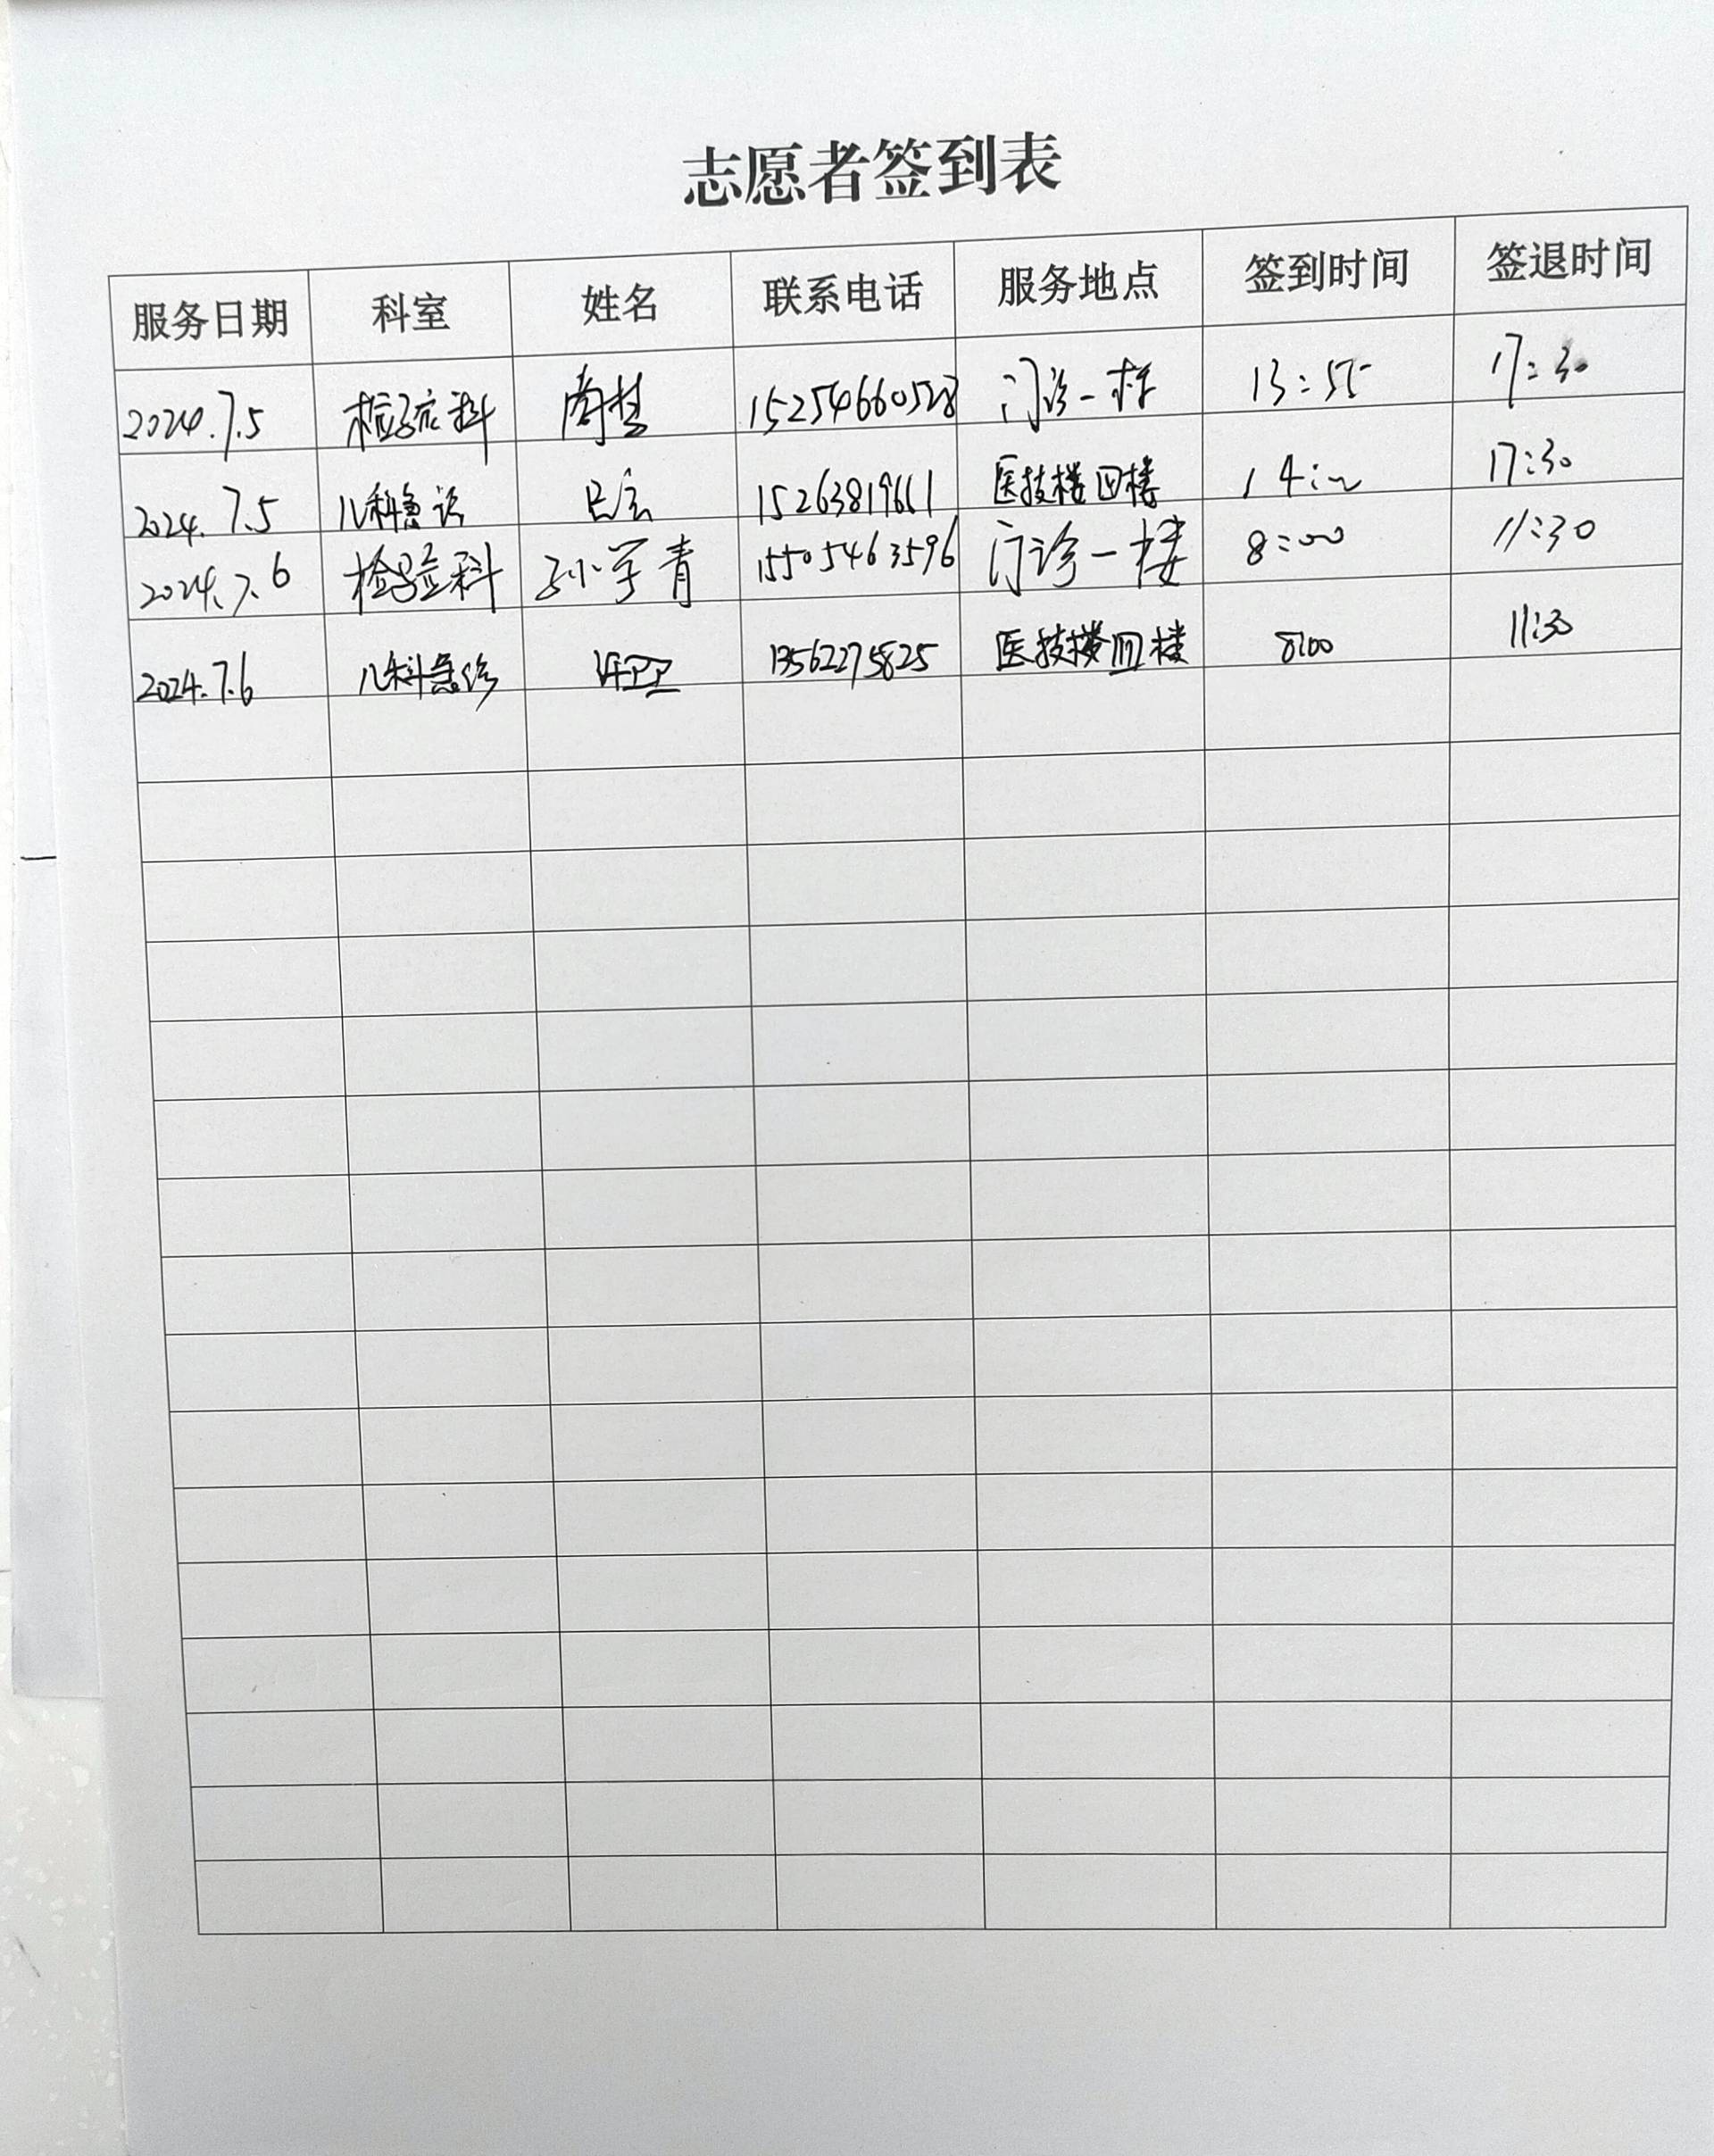 志愿者签到表
服务日期 科室 姓名 联系电话 服务地点 签到时间 签退时间
2024.7.5 检验科 15254660528 门诊一楼 13:55 17:30
2024.7.5 儿科急诊 15263819611 医技楼四楼 14:00 17:30
2024.7.6 检验科 孙学青 15505463596 门诊一楼 8:00 11:30
2024.7.6 儿科急诊 13562275825 医技楼四楼 8:00 11:30